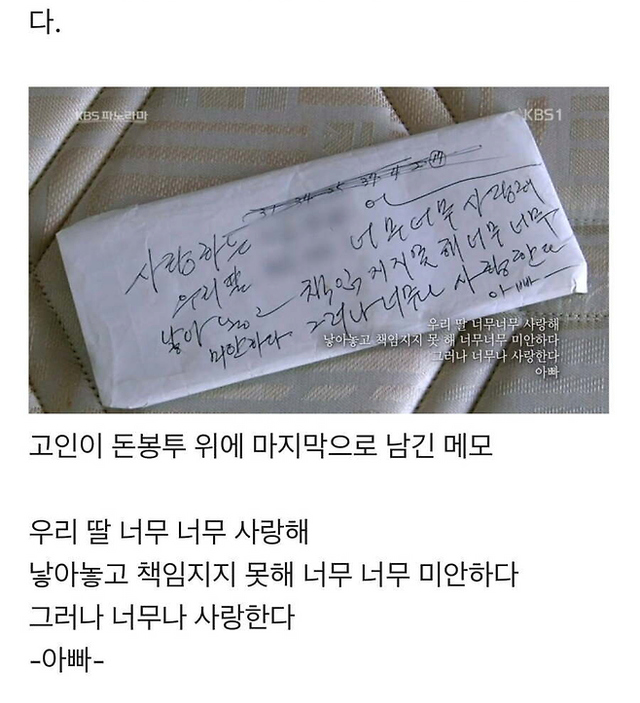 다.
KBS 파노라마
KBS1
사랑하는
우리 딸
너무너무 사랑해
낳아놓고 책임지지 못 해 너무 너무
미안하다 그러나 너무나 사랑한다
아빠
우리 딸 너무너무 사랑해
낳아놓고 책임지지 못 해 너무너무 미안하다
그러나 너무나 사랑한다
아빠
고인이 돈봉투 위에 마지막으로 남긴 메모
우리 딸 너무 너무 사랑해
낳아놓고 책임지지 못해 너무 너무 미안하다
그러나 너무나 사랑한다
-아빠-